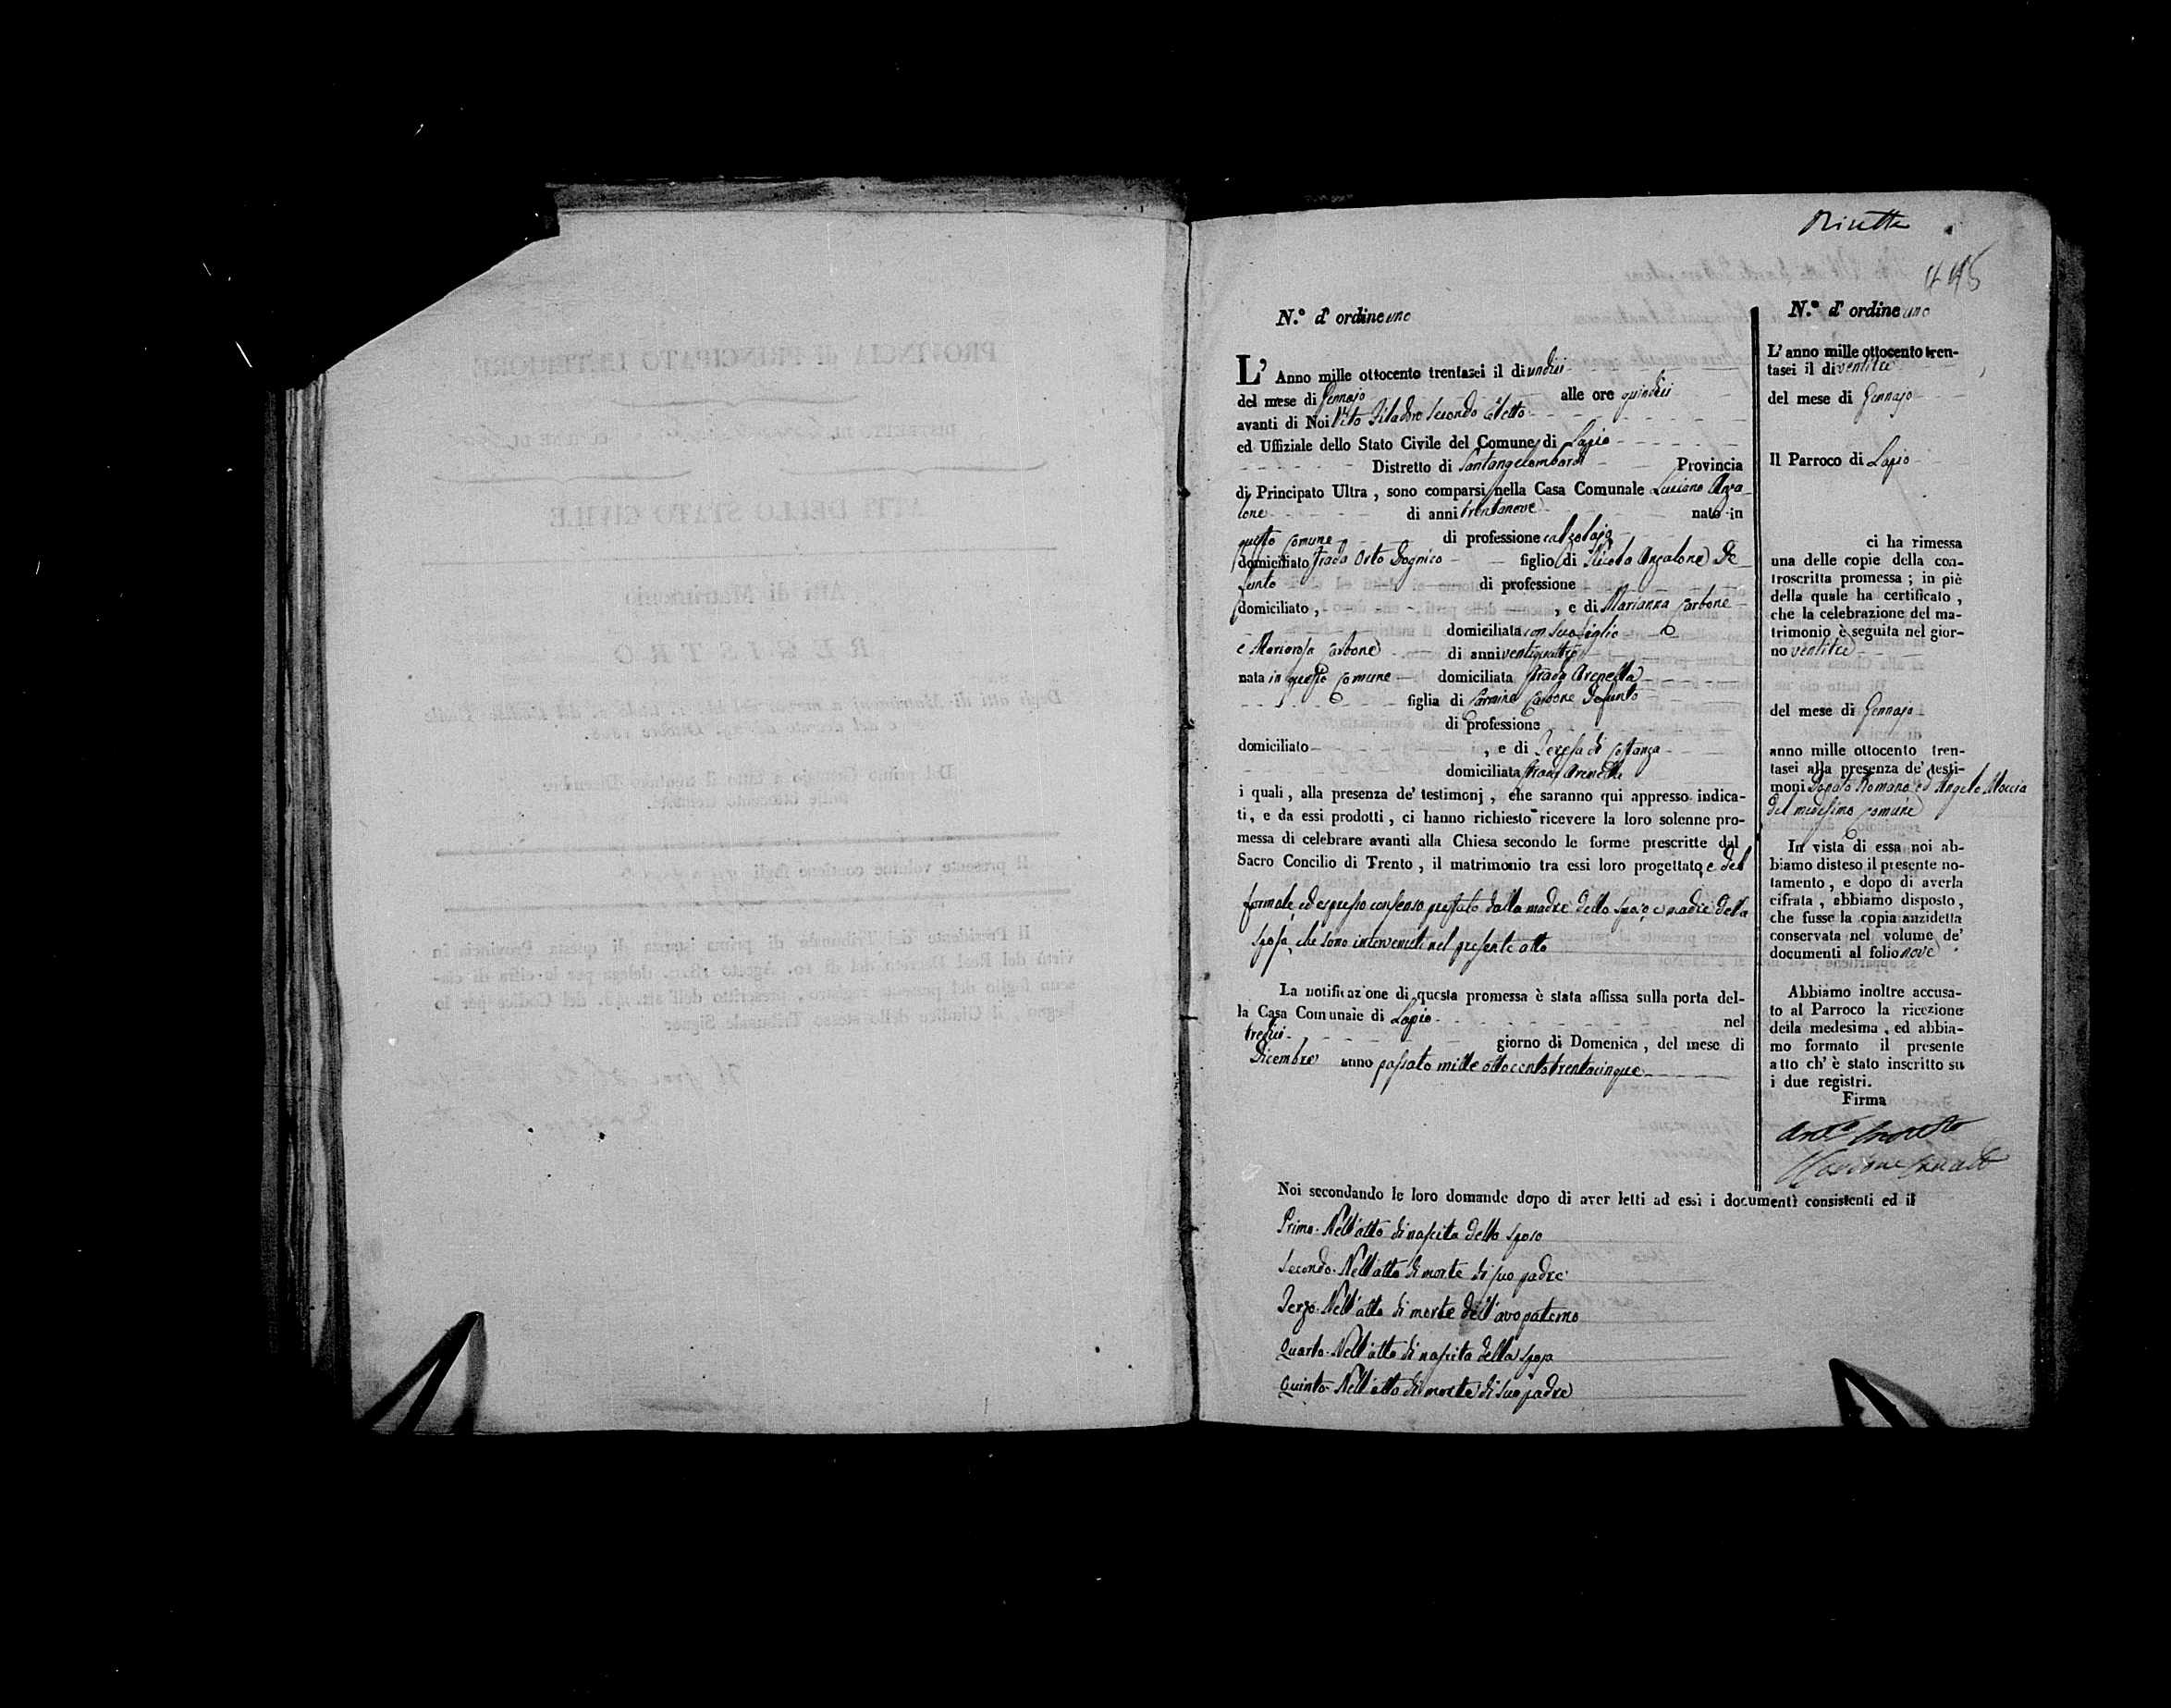 N.° d' ordine uno
L' Anno mille ottocento trentasei il dì undici
del mese di Gennajo alle ore quindici
avanti di Noi Vito Filadoro secondo eletto
ed Uffiziale dello Stato Civile del Comune di Lapio
Distretto di Santangelombardi Provincia
di Principato Ultra, sono comparsi nella Casa Comunale Luciano Anza-
lone di anni trentanove nato in
questo Comune di professione calzolajo
domiciliato strada Orto figlio di Nicola Anzalone De-
funto di professione
domiciliato, , e di Marianna Carbone
domiciliata con suo figlio
e Mariarosa Carbone di anni ventiquattro
nata in questo Comune domiciliata strada Arenella
figlia di Carmine Carbone Defunto
di professione
domiciliato , e di Teresa di Costanza
domiciliata strada Arenella
i quali, alla presenza de' testimonj, che saranno qui appresso indica-
ti, e da essi prodotti, ci hanno richiesto ricevere la loro solenne pro-
messa di celebrare avanti alla Chiesa secondo le forme prescritte dal
Sacro Concilio di Trento, il matrimonio tra essi loro progettato, e del
formale, ed espresso consenso prestato dalla madre dello sposo e madre della
sposa, che sono intervenute nel presente atto
La notificazione di questa promessa è stata affissa sulla porta del-
la Casa Comunale di Lapio nel
tredici giorno di Domenica, del mese di
Dicembre anno passato mille ottocento trentacinque
446
N.° d' ordine uno
L' anno mille ottocento tren-
tasei il dì ventitre
del mese di Gennajo
Il Parroco di Lapio
ci ha rimessa
una delle copie della con-
troscritta promessa; in piè
della quale ha certificato,
che la celebrazione del ma-
trimonio è seguita nel gior-
no ventitre
del mese di Gennajo
anno mille ottocento tren-
tasei alla presenza de' testi-
moni Donato Romano ed Angelo Moccia
del medesimo Comune
In vista di essa noi ab-
biamo disteso il presente no-
tamento, e dopo di averla
cifrata, abbiamo disposto,
che fusse la copia anzidetta
conservata nel volume de'
documenti al folio nove
Abbiamo inoltre accusa-
to al Parroco la ricezione
della medesima, ed abbia-
mo formato il presente
atto ch' è stato inscritto su
i due registri.
Firma
Noi secondando le loro domande dopo di aver letti ad essi i documenti consistenti ed il
Primo. Nell'atto di nascita dello sposo
Secondo. Nell'atto di morte di suo padre
Terzo. Nell'atto di morte dell'avo paterno
Quarto. Nell'atto di nascita della sposa
Quinto. Nell'atto di morte di suo padre